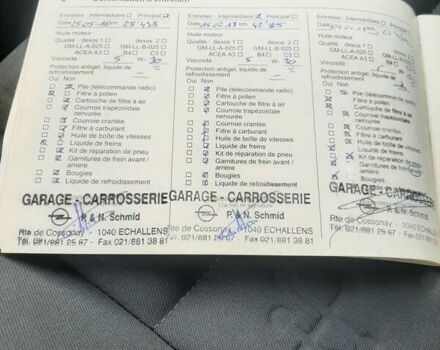 Entretien : Intermédiaire Principal
Date 25.05.16 km 28'438
Huile moteur
Qualité : dexos 1 dexos 2
GM-LL-A-025 GM-LL-B-025
ACEA A3 B4 C3
Viscosité 5 W- 30
Protection antigel, liquide de refroidissement °C
Oui Non
Pile (télécommande radio)
Filtre à pollen
Cartouche de filtre à air
Courroie trapézoïdale nervurée
Courroie crantée
Filtre à carburant
Huile de boîte de vitesses
Liquide de freins
Kit de réparation de pneu
Garnitures de frein avant / arrière
Bougies
Liquide de refroidissement
GARAGE - CARROSSERIE
P. & N. Schmid
Rte de Cossonay - 1040 ECHALLENS
Tél. 021/881 25 67 - Fax 021/881 38 81
Entretien : Intermédiaire Principal
Date km
Huile moteur
Qualité : dexos 1 dexos 2
GM-LL-A-025 GM-LL-B-025
ACEA A3 B4 C3
Viscosité 5 W- 30
Protection antigel, liquide de refroidissement °C
Oui Non
Pile (télécommande radio)
Filtre à pollen
Cartouche de filtre à air
Courroie trapézoïdale nervurée
Courroie crantée
Filtre à carburant
Huile de boîte de vitesses
Liquide de freins
Kit de réparation de pneu
Garnitures de frein avant / arrière
Bougies
Liquide de refroidissement
GARAGE - CARROSSERIE
P. & N. Schmid
Rte de Cossonay - 1040 ECHALLENS
Tél. 021/881 25 67 - Fax 021/881 38 81
Entretien : Intermédiaire
Huile moteur
Qualité : dexos 1
GM-LL-A-025
ACEA A3
Viscosité
Protection antigel, liquide de refroidissement
Oui Non
Pile (télécommande radio)
Filtre à pollen
Cartouche de filtre à air
Courroie trapézoïdale nervurée
Courroie crantée
Filtre à carburant
Huile de boîte de vitesses
Liquide de freins
Kit de réparation de pneu
Garnitures de frein avant / arrière
Bougies
Liquide de refroidissement
GARAGE - CARROSSERIE
P. & N. Schmid
Rte de Cossonay